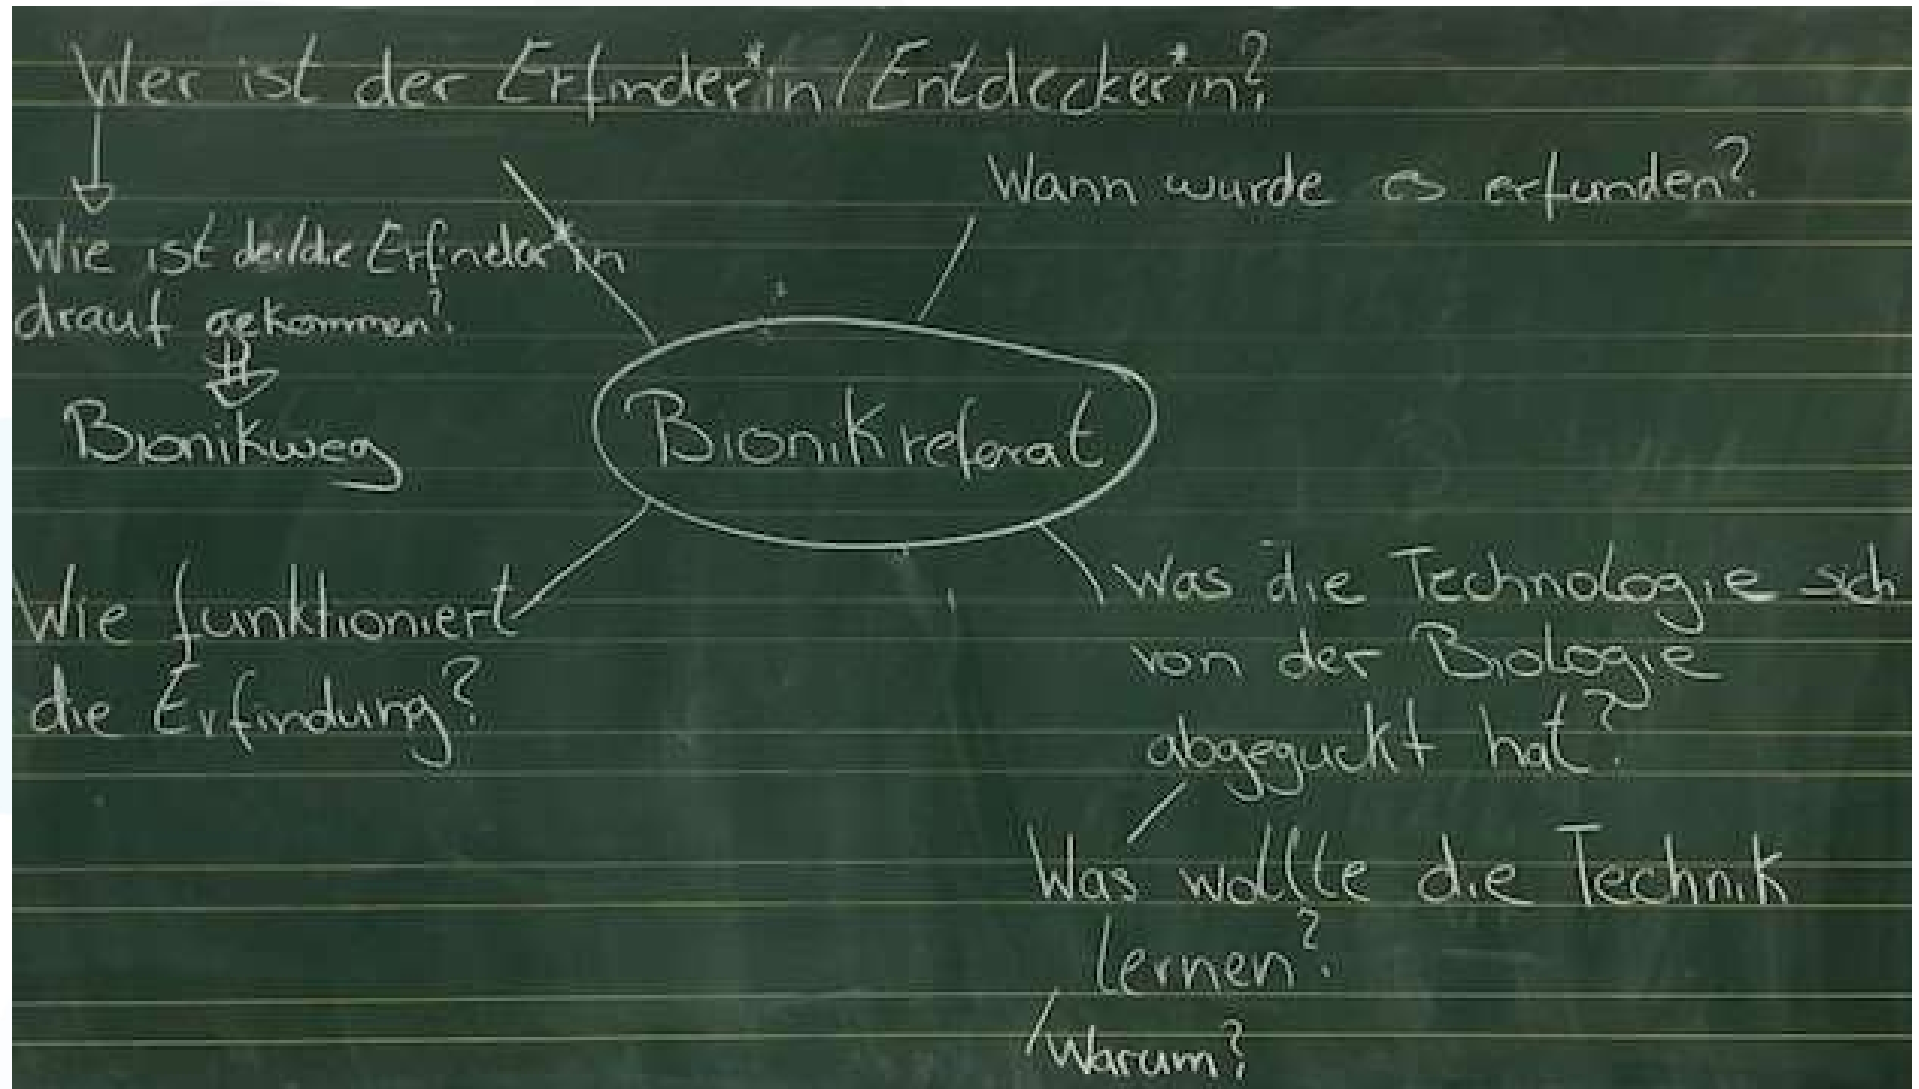 Wer ist der Erfinder*in/Entdecker*in?
Wann wurde es erfunden?
Wie ist der/die Erfinder*in
drauf gekommen?
Bionikweg
Bionikreferat
Wie funktioniert
die Erfindung?
Was die Technologie sich
von der Biologie
abgeguckt hat?
Was wollte die Technik
lernen?
Warum?